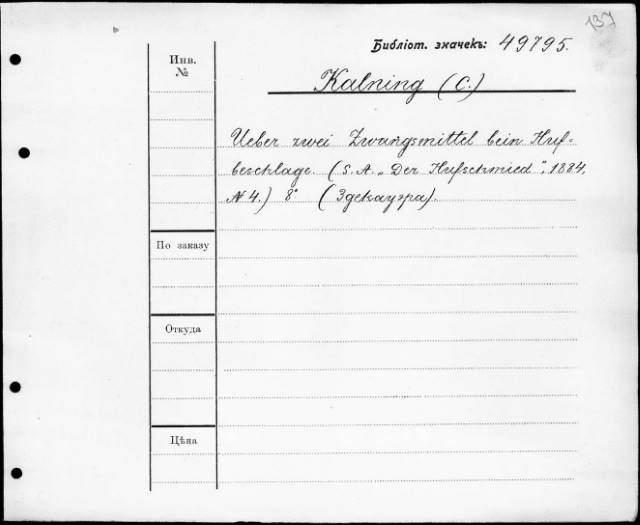 137
Библіот. значекъ: 49795.
Инв.
№
Kalning (C.)
Ueber zwei Zwangsmittel bein Huf=
beschlage. (S. A. „Der Hufschmied", 1884,
№ 4.) 8° (Здекауэра).
По заказу
Откуда
Цѣна